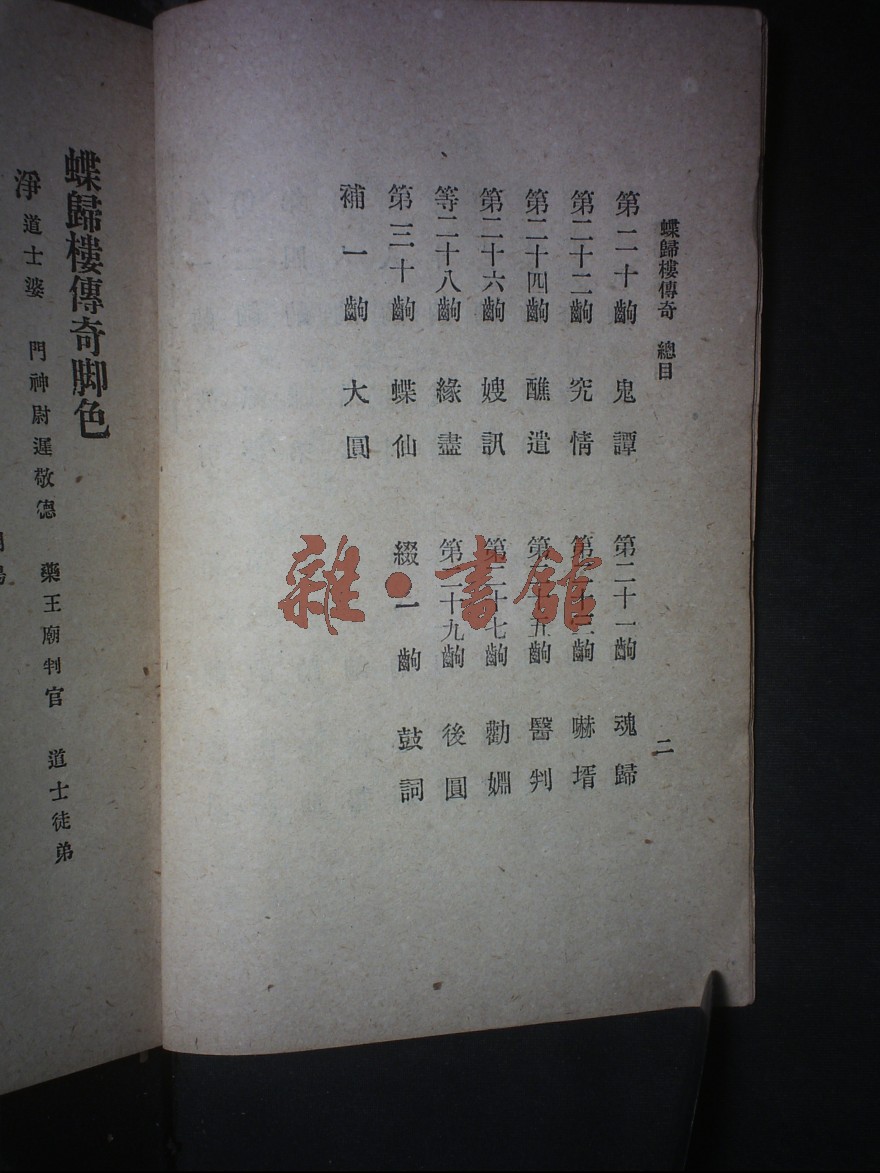 蝶歸樓傳奇 總目 二
第二十齣 鬼譚 第二十一齣 魂歸
第二十二齣 究情 第二十三齣 嚇壻
第二十四齣 醮遣 第二十五齣 醫判
第二十六齣 嫂訊 第二十七齣 勸婣
等二十八齣 緣盡 第二十九齣 後圓
第三十齣 蝶仙 綴一齣 鼓詞
補一齣 大圓
雜·書館
蝶歸樓傳奇脚色
淨 道士婆 門神尉遲敬德 藥王廟判官 道士徒弟